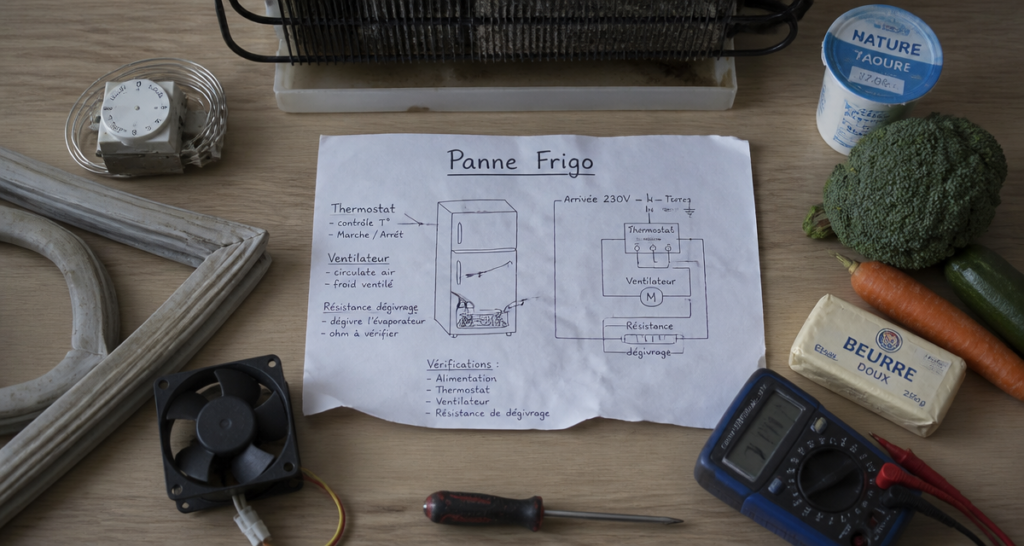 Panne Frigo
Thermostat
- contrôle T°
- Marche / Arrêt
Ventilateur
- circulate air
- froid ventilé
Résistance dégivrage
- dégivre l'évaporateur
- ohm à vérifier
Arrivée 230V
Thermostat
Ventilateur
M
Résistance
dégivrage
Vérifications :
- Alimentation
- Thermostat
- Ventilateur
- Résistance de dégivrage
NATURE
TAOURE
BEURRE
DOUX